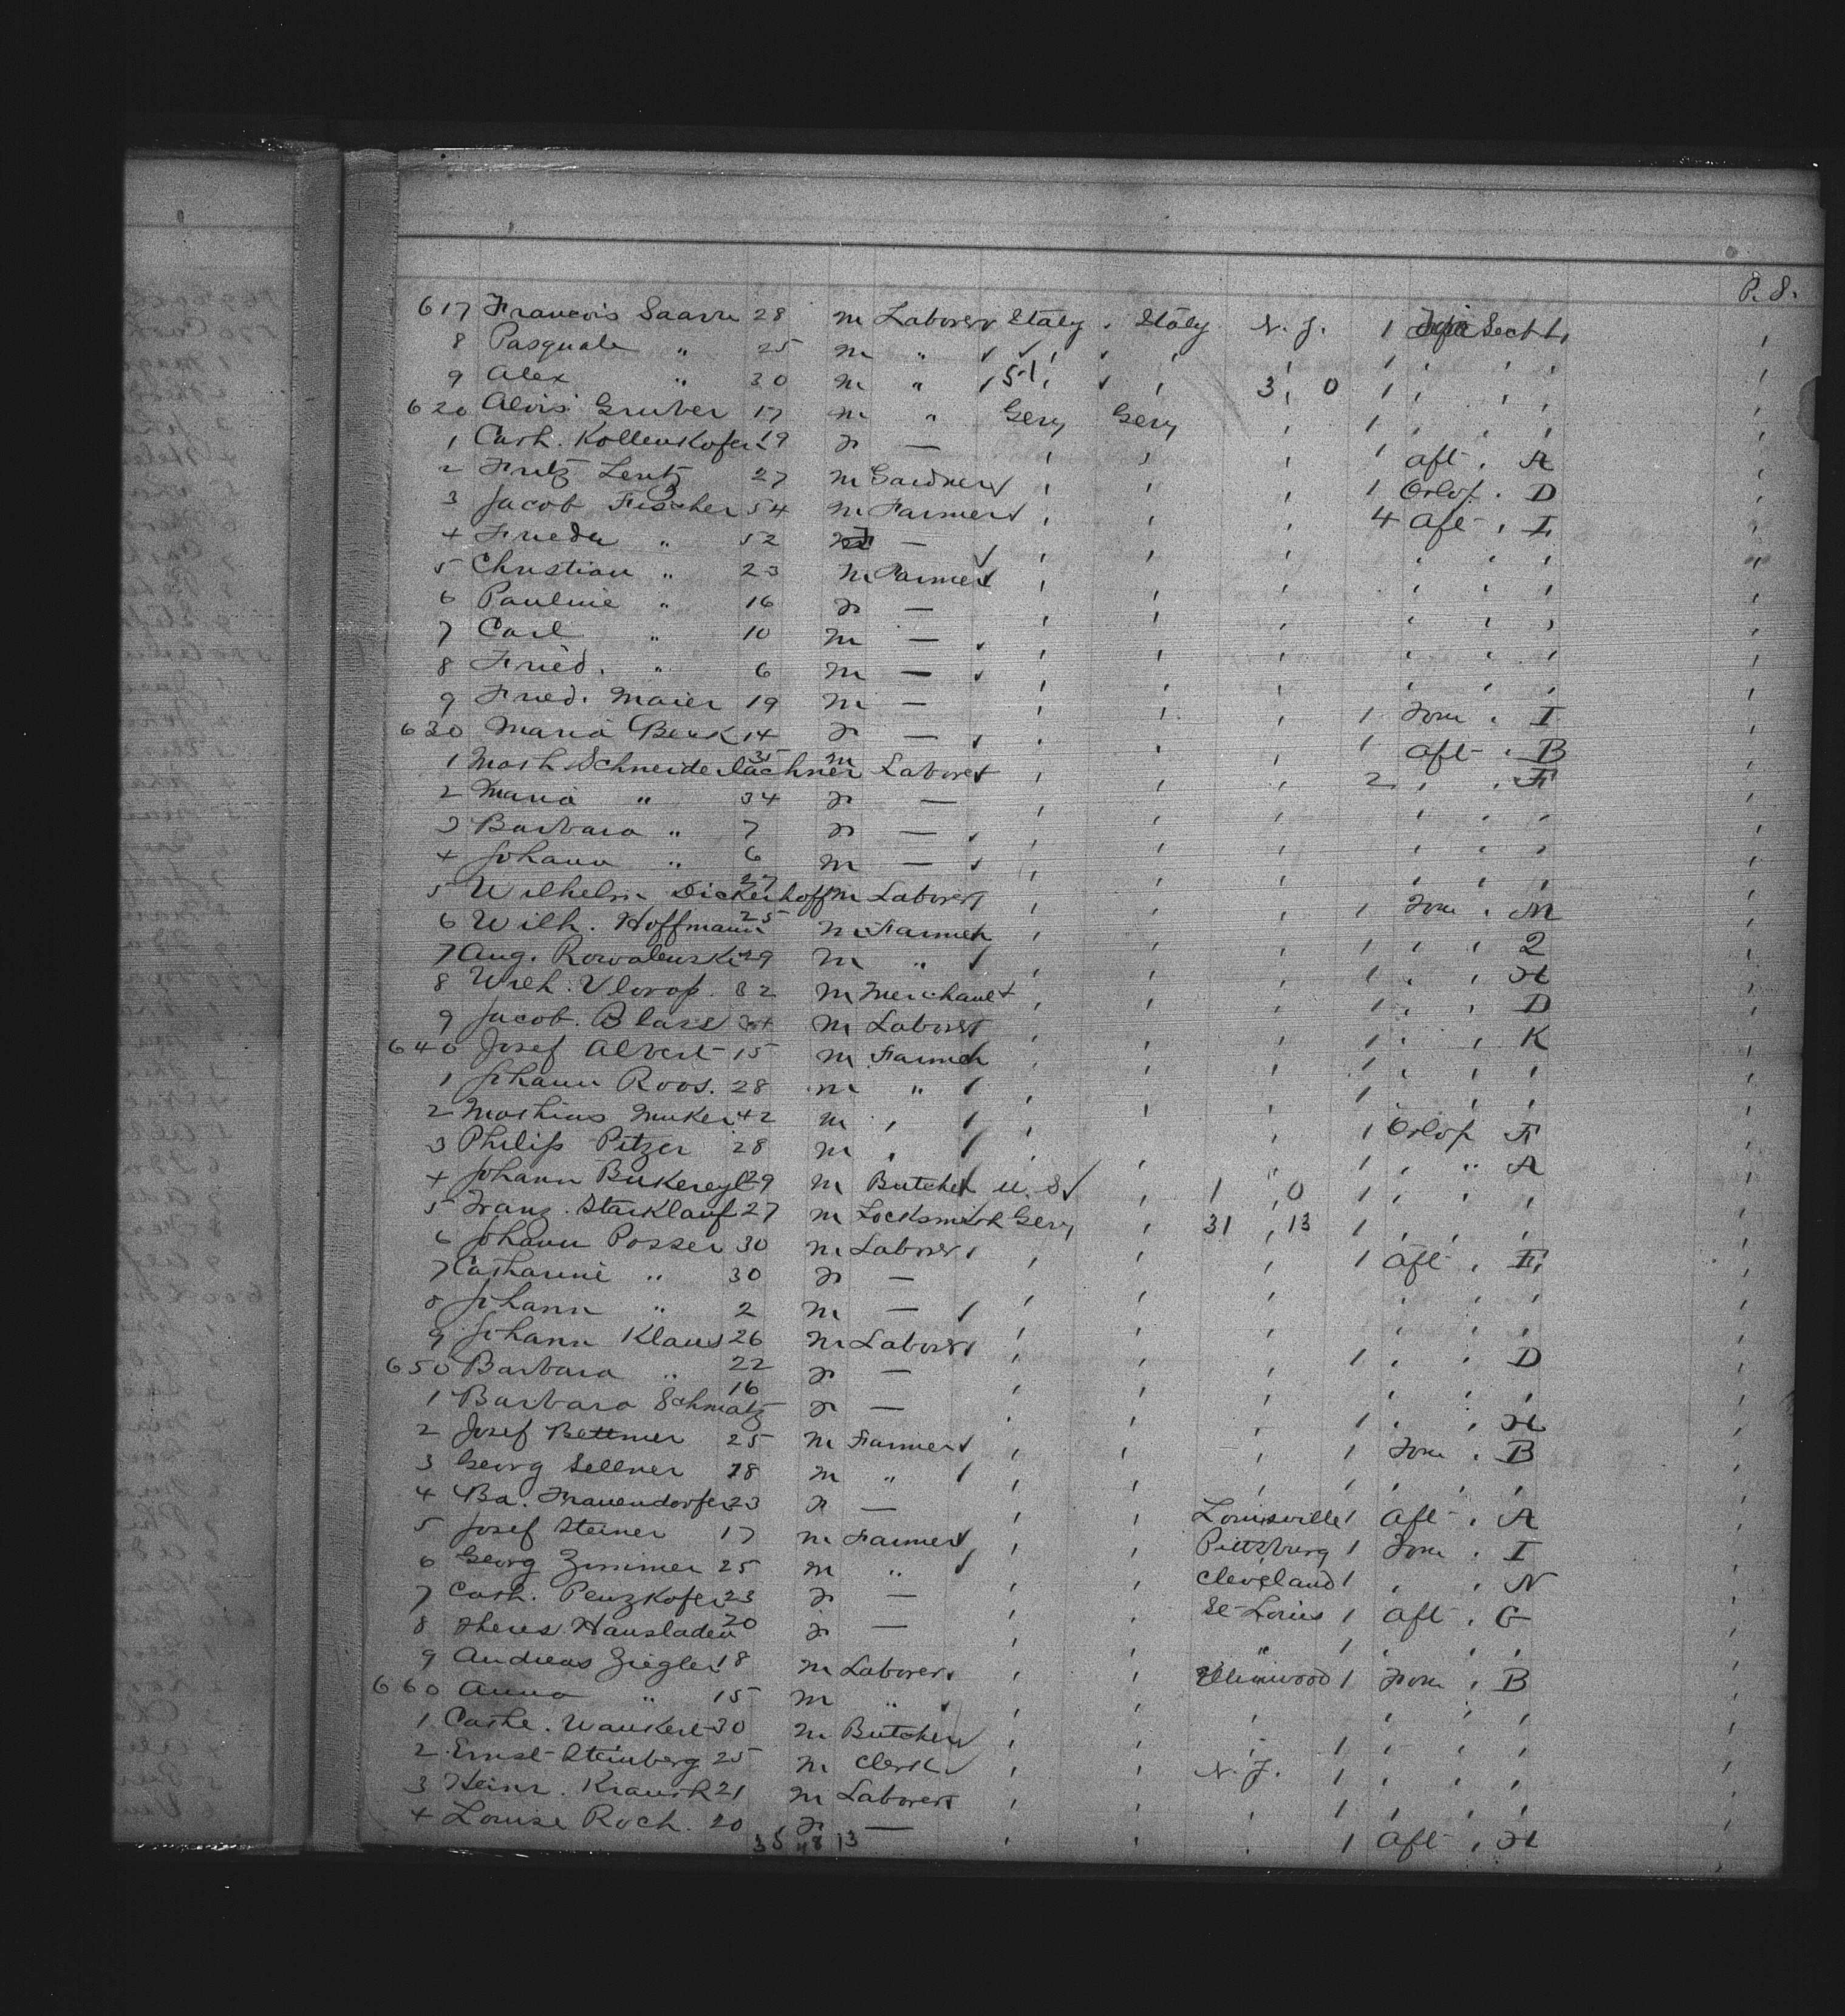 P. 8.
617 Francois Saarn 28 m Laborer Italy , Italy N. Y. 1 Sect L,
8 Pasquale " 25 m " , , 1 , ,
9 Alex " 30 m " 51, , , 3, 0 1 , ,
620 Alois Gruber 17 m " Gery Gery , 1 , ,
1 Cath. Kollenkofer 19 f — , , , 1 Aft , A
2 Fritz Lentz 27 m Gardner , , , 1 Orlop , D
3 Jacob Fischer 54 m Farmer , , , 4 Aft , I
4 Frieda " 52 f — , , , , , ,
5 Christian " 23 m Farmer , , , , , ,
6 Pauline " 16 f — , , , , , ,
7 Carl " 10 m — , , , , , ,
8 Fried. " 6 m — , , , , , ,
9 Fried. Maier 19 m — , , , 1 Fore , I
630 Maria Beck 14 f — , , , 1 Aft , B
1 Math Schneiderlachner 35 m Laborer , , , 2 , , F
2 Maria " 34 f — , , , , , ,
3 Barbara " 7 f — , , , , , ,
4 Johann " 6 m — , , , , , ,
5 Wilhelm Dickerhoff 27 m Laborer , , , 1 Fore , M
6 Wilh. Hoffmann 25 m Farmer , , , 1 , , 2
7 Aug. Rowalewski 29 m " , , , 1 , , H
8 Wilh. Vlorop. 32 m Merchant , , , 1 , , D
9 Jacob. Blass m Laborer , , , 1 , , K
640 Josef Albert 15 m Farmer , , , 1 , , ,
1 Johann Roos. 28 m " , , , 1 , , ,
2 Mathias Muker 42 m , , , , 1 Orlop F
3 Philip Pitzer 28 m , , , , 1 , " A
4 Johann Bukereyl 29 m Butcher U. S , 1 , 0 1 , , ,
5 Franz. Starklauf 27 m Locksmith Gery , 31 , 13 1 , , ,
6 Johann Posser 30 m Laborer , , , 1 Aft , E,
7 Catharine " 30 f — , , , , , ,
8 Johann " 2 m — , , , , , ,
9 Johann Klaus 26 m Laborer , , , 1 , , D
650 Barbara " 22 f — , , , , , ,
1 Barbara Schmatz 16 f — , , , 1 , , H
2 Josef Bettmer 25 m Farmer , , , 1 Fore , B
3 Georg Sellner 18 m " , , , 1 , , ,
4 Ba. Frauendorfer 23 f — , , Louisville 1 Aft , A
5 Josef Steiner 17 m Farmer , , Pittsburg 1 Fore , I
6 Georg Zimmer 25 m " , , Cleveland 1 , , N
7 Cath. Penzkofer 23 f — , , St Louis 1 Aft , G
8 Theres. Hausladen 20 f — , , " 1 , , ,
9 Andreas Ziegler 18 m Laborer , , 1 Fore , B
660 Anna " 15 m " , , , , , ,
1 Cathe. Wankerl 30 m Butcher , , , 1 , , ,
2 Ernst Steinberg 25 m Clerk , , N. Y. 1 , , ,
3 Heinr. Krauth 21 m Laborer , , , 1 , , ,
4 Louise Roch. 20 f — , , , 1 Aft , H
35 48 13